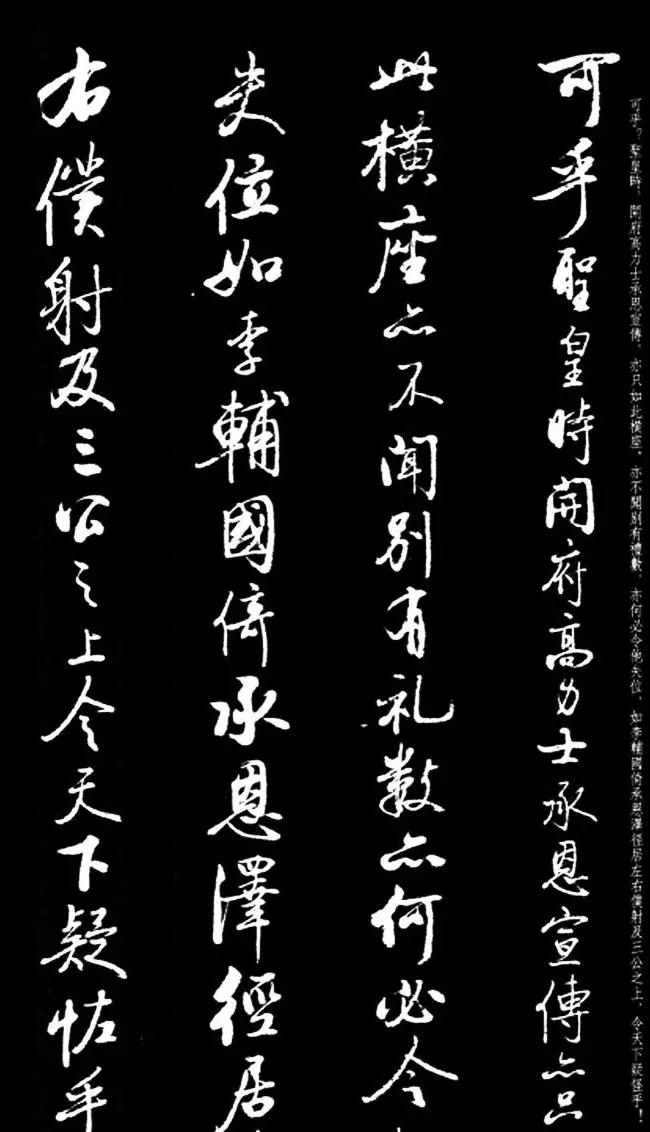 可乎？聖皇時，開府高力士承恩宣傳，亦只如此橫座，亦不聞別有禮數，亦何必令他失位，如李輔國倚承恩澤徑居左右僕射及三公之上，令天下疑怪乎！
可乎聖皇時開府高力士承恩宣傳亦只
此橫座亦不聞別有礼數亦何必令
失位如李輔國倚承恩澤徑居
右僕射及三公之上令天下疑恠乎